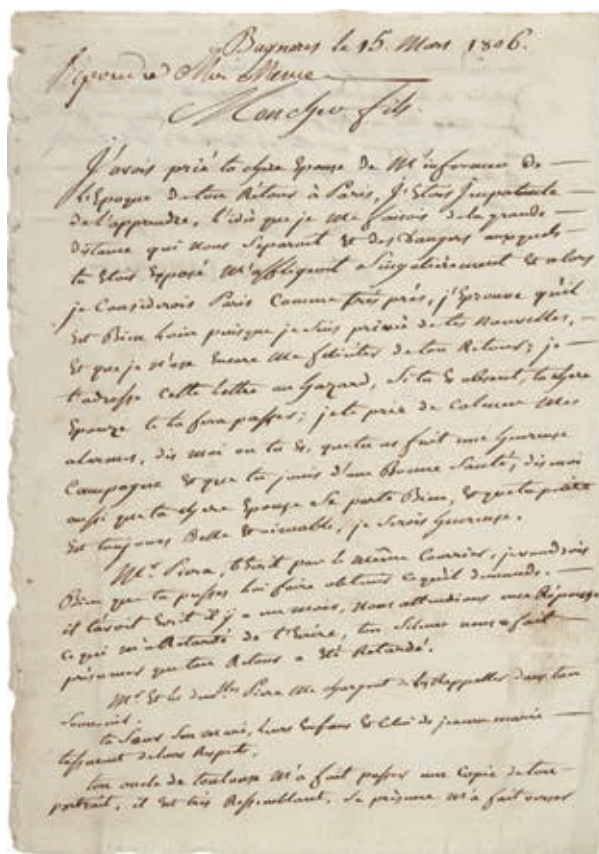 Bagneres le 15. Mars 1806.
Répondre Moi Meme
Mon cher fils.
J'avois prié ta chere Epouse de M'informer de
l'Epoque de ton Rétour à Paris, J'Etois Impatiente
de l'apprendre, l'idé que je me faisois de la grande
distance qui nous Separoit et des dangers auxquels
tu Etois Exposé M'affligeoit Singulierement et alors
je Considerois Paris Comme trés prés, j'Eprouve qu'il
Est Bien Loin puisque je suis privée de tes Nouvelles,
Et que je n'ose Encore Me feliciter de ton Retour; je
t'adresse Cette Lettre au Hazard, Si tu Es absent, ta chere
Epouze te la fera passer; je te prie de Calmer Mes
alarmes, dis moi ou tu Es, que tu as fait une heureuse
Campagne Et que tu jouis d'une Bonne Santé, dis moi
aussi que ta chere Epouse Se porte Bien, Et que ta petite
Est toujours Belle Et aimable, je Serois heureuse.
Mr. t'Ecrit par le même Courrier, je voudrois
Bien que tu pusses Lui faire obtenir Ce qu'il demande.
il t'avoit Ecrit il y a un mois, Nous attendions une Réponse
Ce qui m'a Retardé de t'Ecrire, ton Silence nous a fait
présumer que ton Retour a Eté Retardé.
Mr. Et les dmlles Me chargent de les Rappeller dans ton
Souvenir.
ta Sœur Son mari, leurs Enfans Et Celui de jeanne marie
t'assurent de leurs Respects.
ton oncle de toulouse M'a fait passer une Copie de ton
portrait, il Est trés Ressemblant, Sa présence M'a fait verser